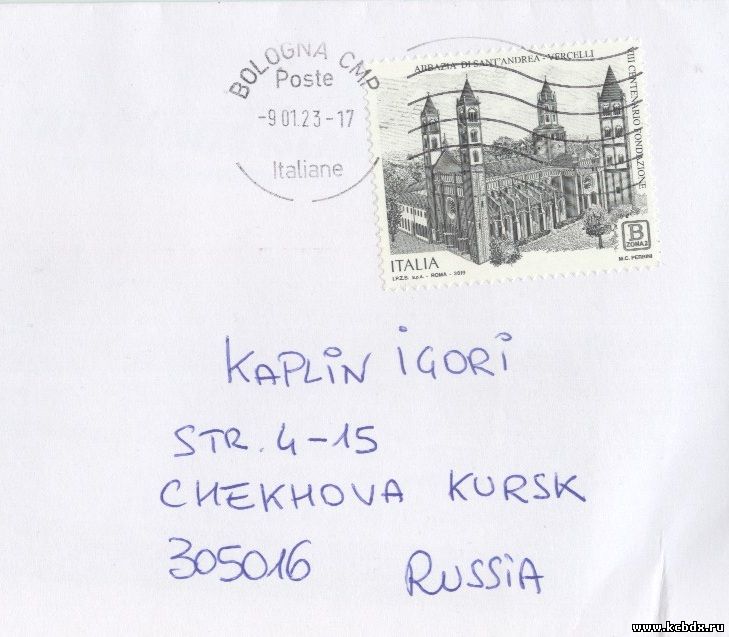 BOLOGNA CMP
Poste
-9 01.23-17
Italiane
ABBAZIA DI SANT'ANDREA - VERCELLI
VIII CENTENARIO FONDAZIONE
B
ZONA 2
ITALIA
I.P.Z.S. S.p.A. - ROMA - 2019
M.C. PERRINI
KAPLIN IGORI
STR. 4-15
CHEKHOVA KURSK
305016 RUSSIA
www.kcbdx.ru